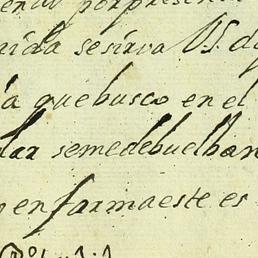 por presen
nida se sirva VS. d
a que busco en el
lar se me debuelban
en farma este es